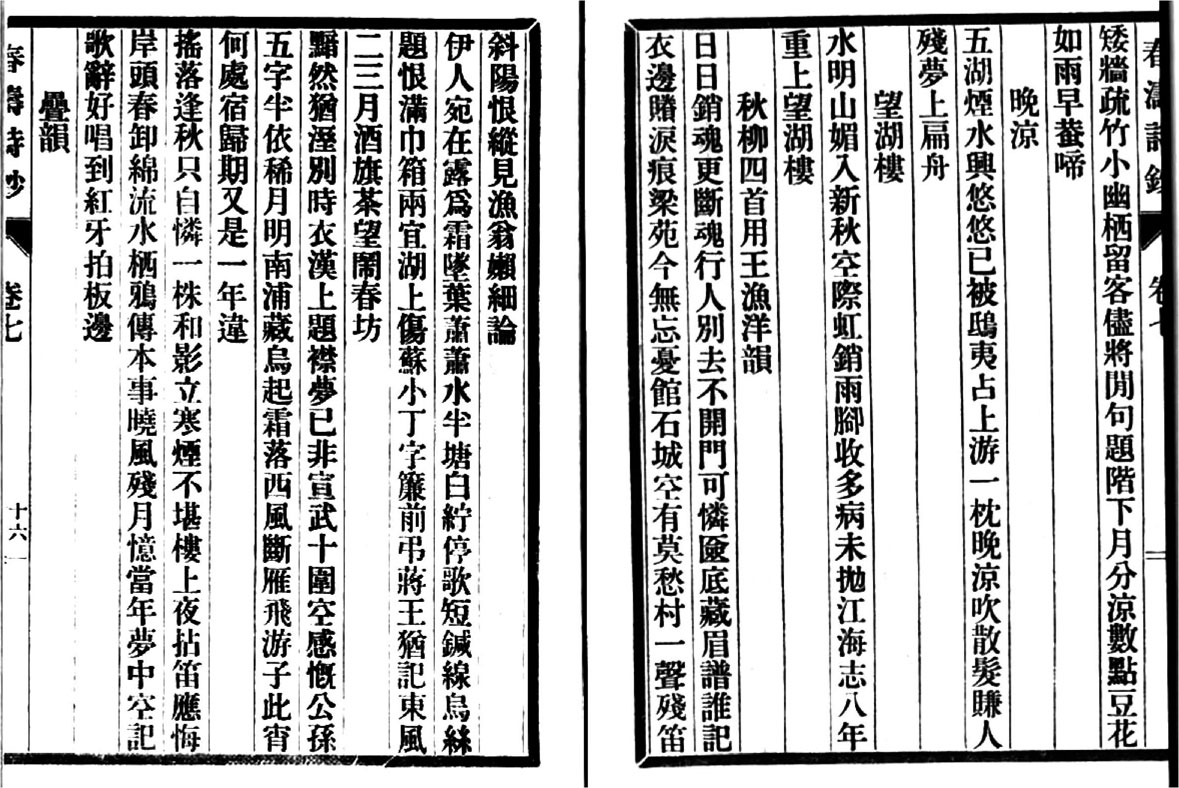 春濤詩鈔
卷七
矮牆疏竹小幽栖留客儘將閒句題階下月分涼數點豆花
如雨早蛩啼
晚涼
五湖煙水興悠悠已被鴟夷占上游一枕晚涼吹散髮賺人
殘夢上扁舟
望湖樓
水明山媚入新秋空際虹銷雨腳收多病未拋江海志八年
重上望湖樓
秋柳四首用王漁洋韻
日日銷魂更斷魂行人別去不開門可憐匳底藏眉譜誰記
衣邊賸淚痕梁苑今無忘憂館石城空有莫愁村一聲殘笛
斜陽恨縱見漁翁嬾細論
伊人宛在露爲霜墜葉蕭蕭水半塘白紵停歌短鍼線烏絲
題恨滿巾箱兩宜湖上傷蘇小丁字簾前弔蔣王猶記東風
二三月酒旗茶望鬧春坊
黯然猶溼別時衣漢上題襟夢已非宣武十圍空感慨公孫
五字半依稀月明南浦藏烏起霜落西風斷雁飛游子此宵
何處宿歸期又是一年違
搖落逢秋只自憐一株和影立寒煙不堪樓上夜拈笛應悔
岸頭春卸綿流水栖鴉傳本事曉風殘月憶當年夢中空記
歌辭好唱到紅牙拍板邊
疊韻
春濤詩鈔
卷七
十六